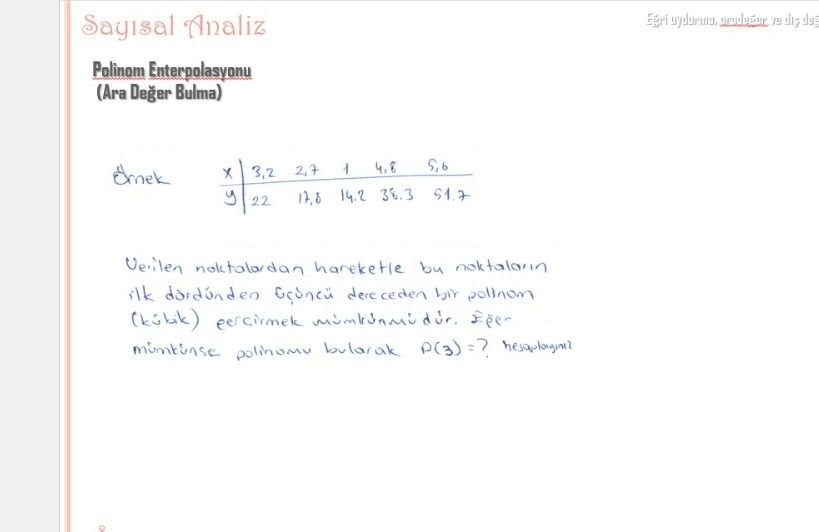 Sayısal Analiz
Eğri uydurma, aradeğer ve dış değ
Polinom Enterpolasyonu
(Ara Değer Bulma)
Örnek
x 3,2 2,7 1 4,8 5,6
y 22 17,8 14.2 38.3 51.7
Verilen noktalardan hareketle bu noktaların
ilk dördünden üçüncü dereceden bir polinom
(kübik) geçirmek mümkünmüdür. Eğer
mümkünse polinomu bularak P(3)=? hesaplayınız
8